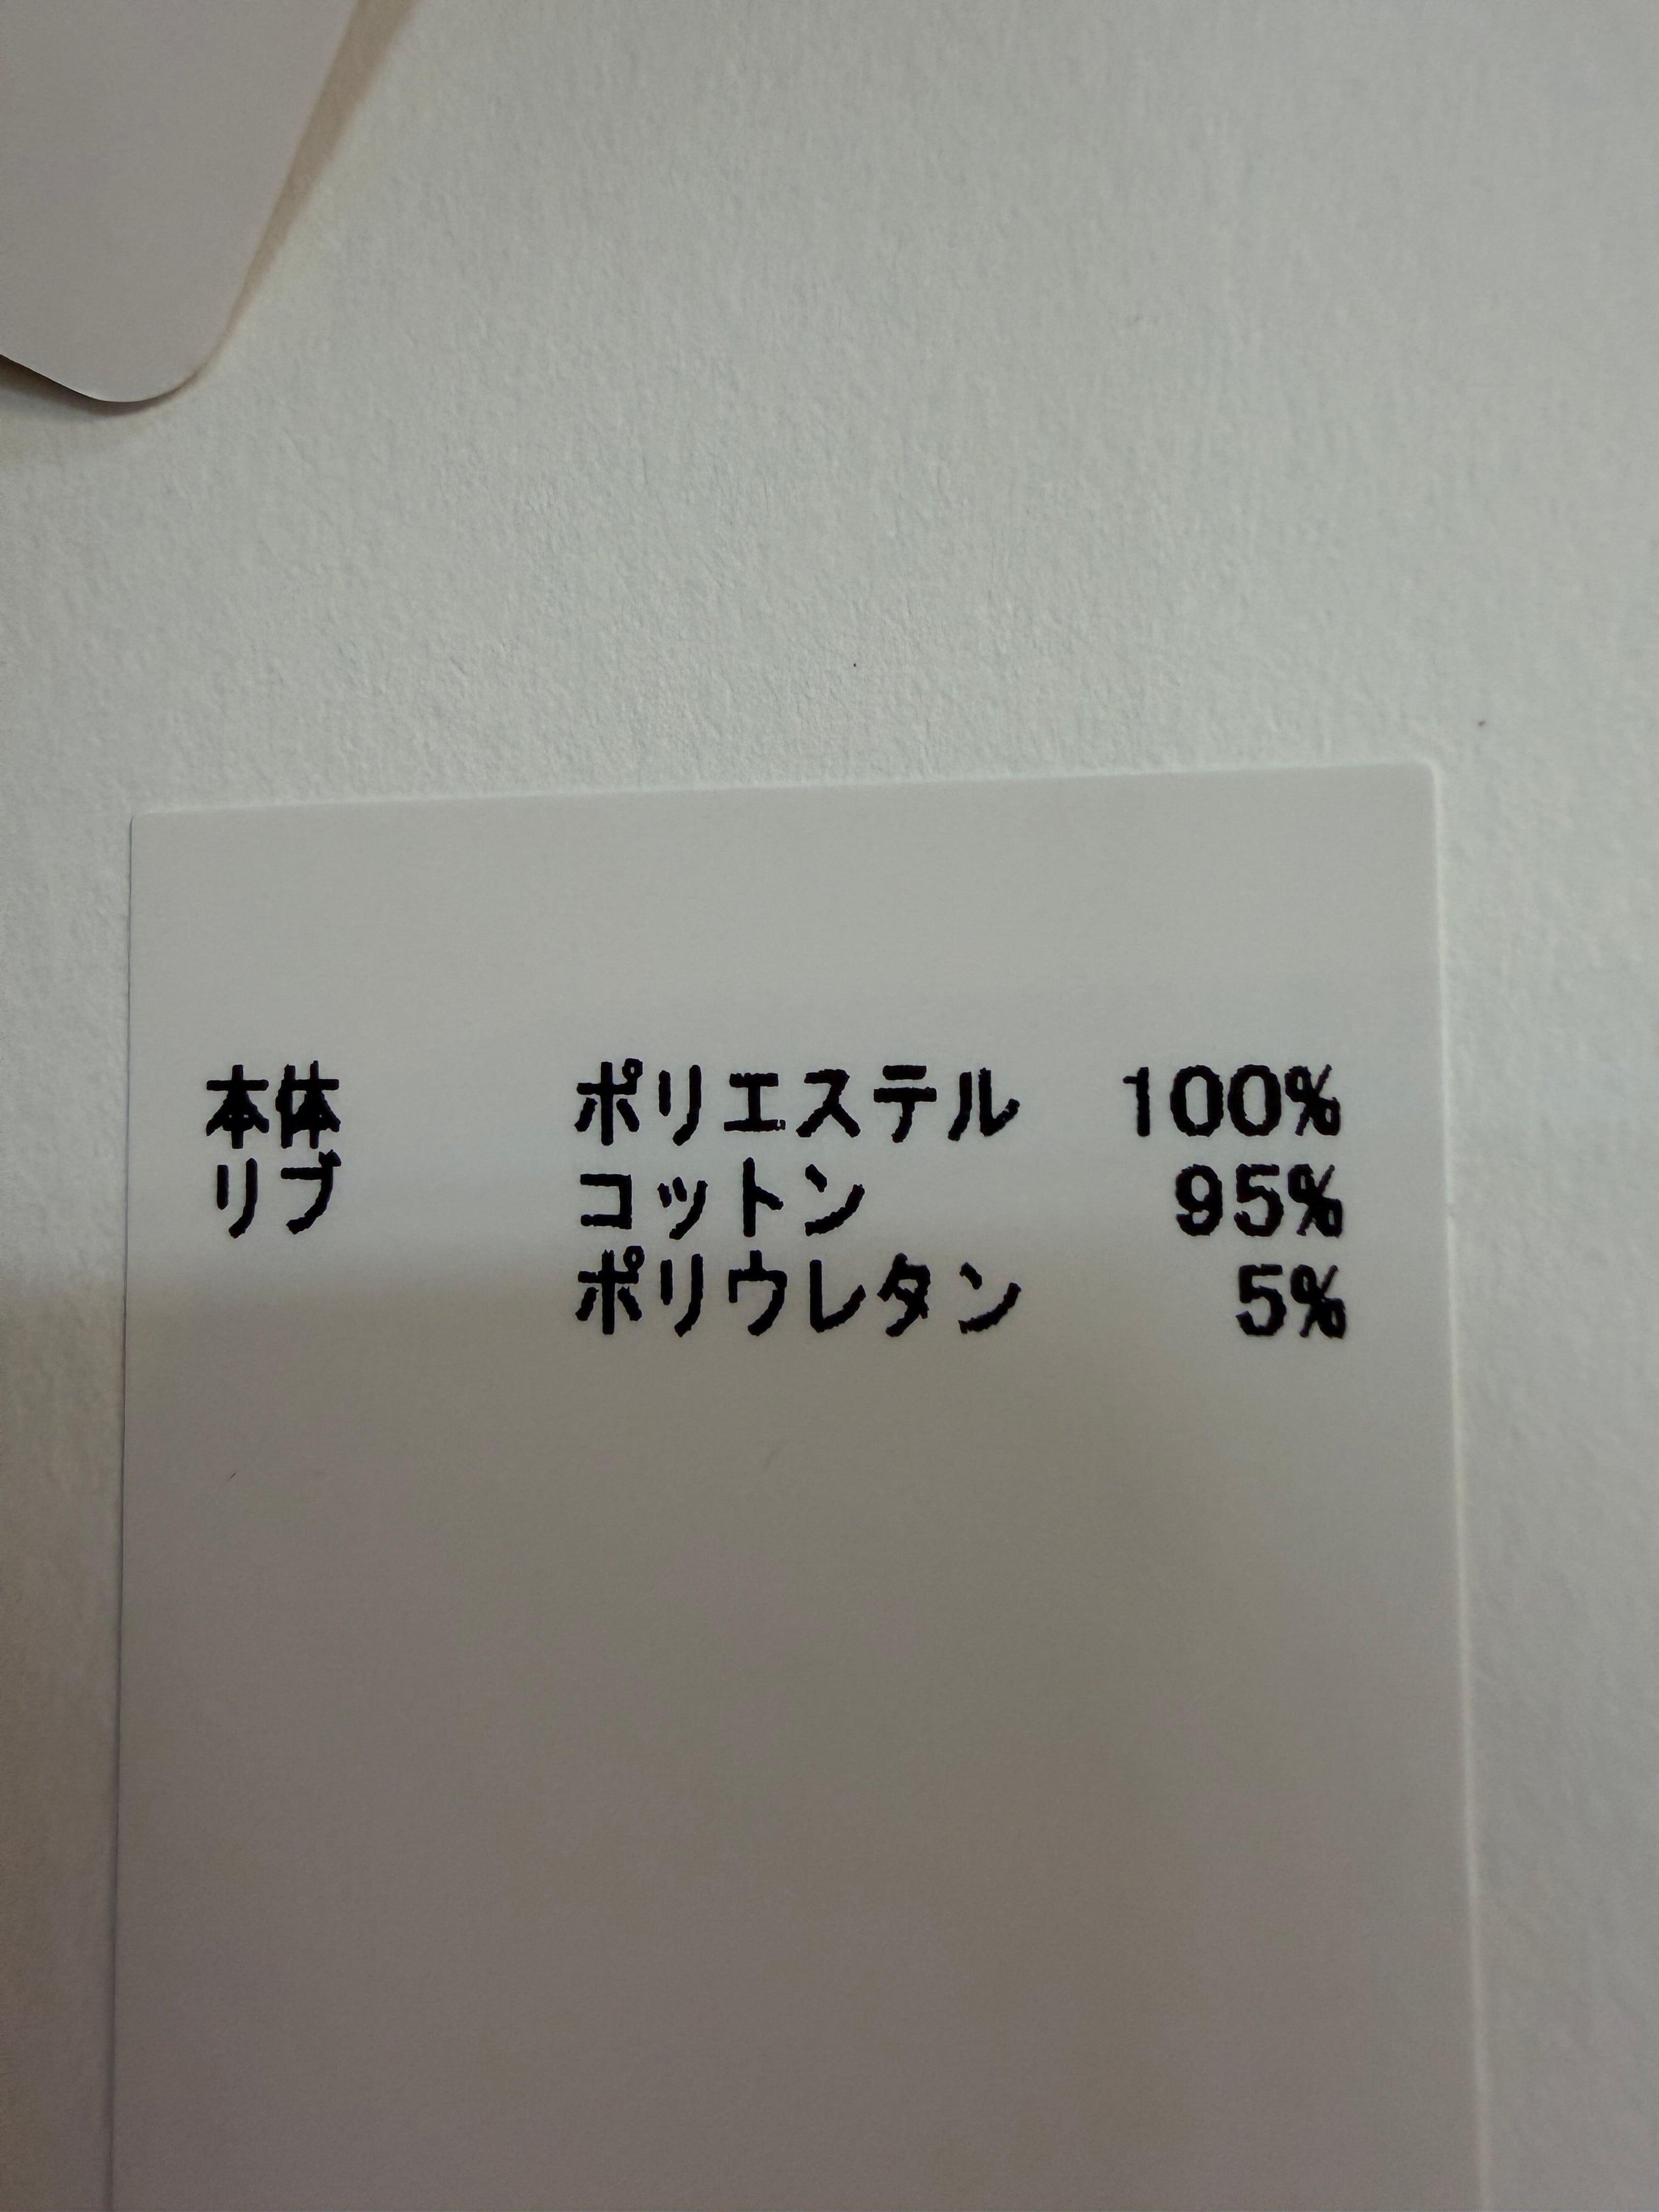 本体 ポリエステル 100%
リブ コットン 95%
ポリウレタン 5%